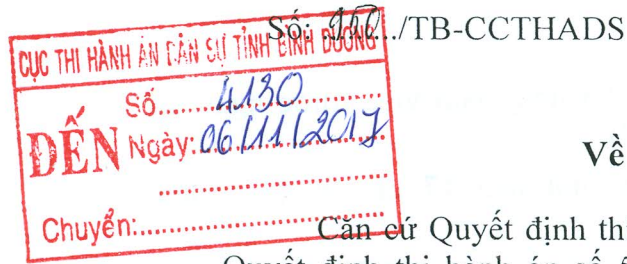 Số: .../TB-CCTHADS
CỤC THI HÀNH ÁN DÂN SỰ TỈNH BÌNH DƯƠNG
Số.......4130............
ĐẾN Ngày: 06/11/2017
Chuyển:............
Về
Căn cứ Quyết định th
Quyết định thi hành án số